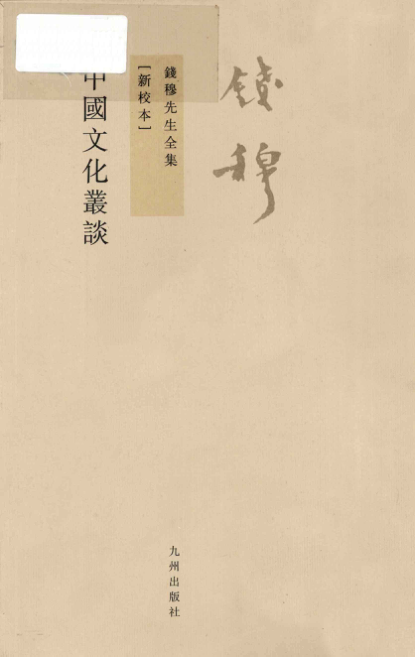 錢穆
錢穆先生全集
[新校本]
中國文化叢談
九州出版社